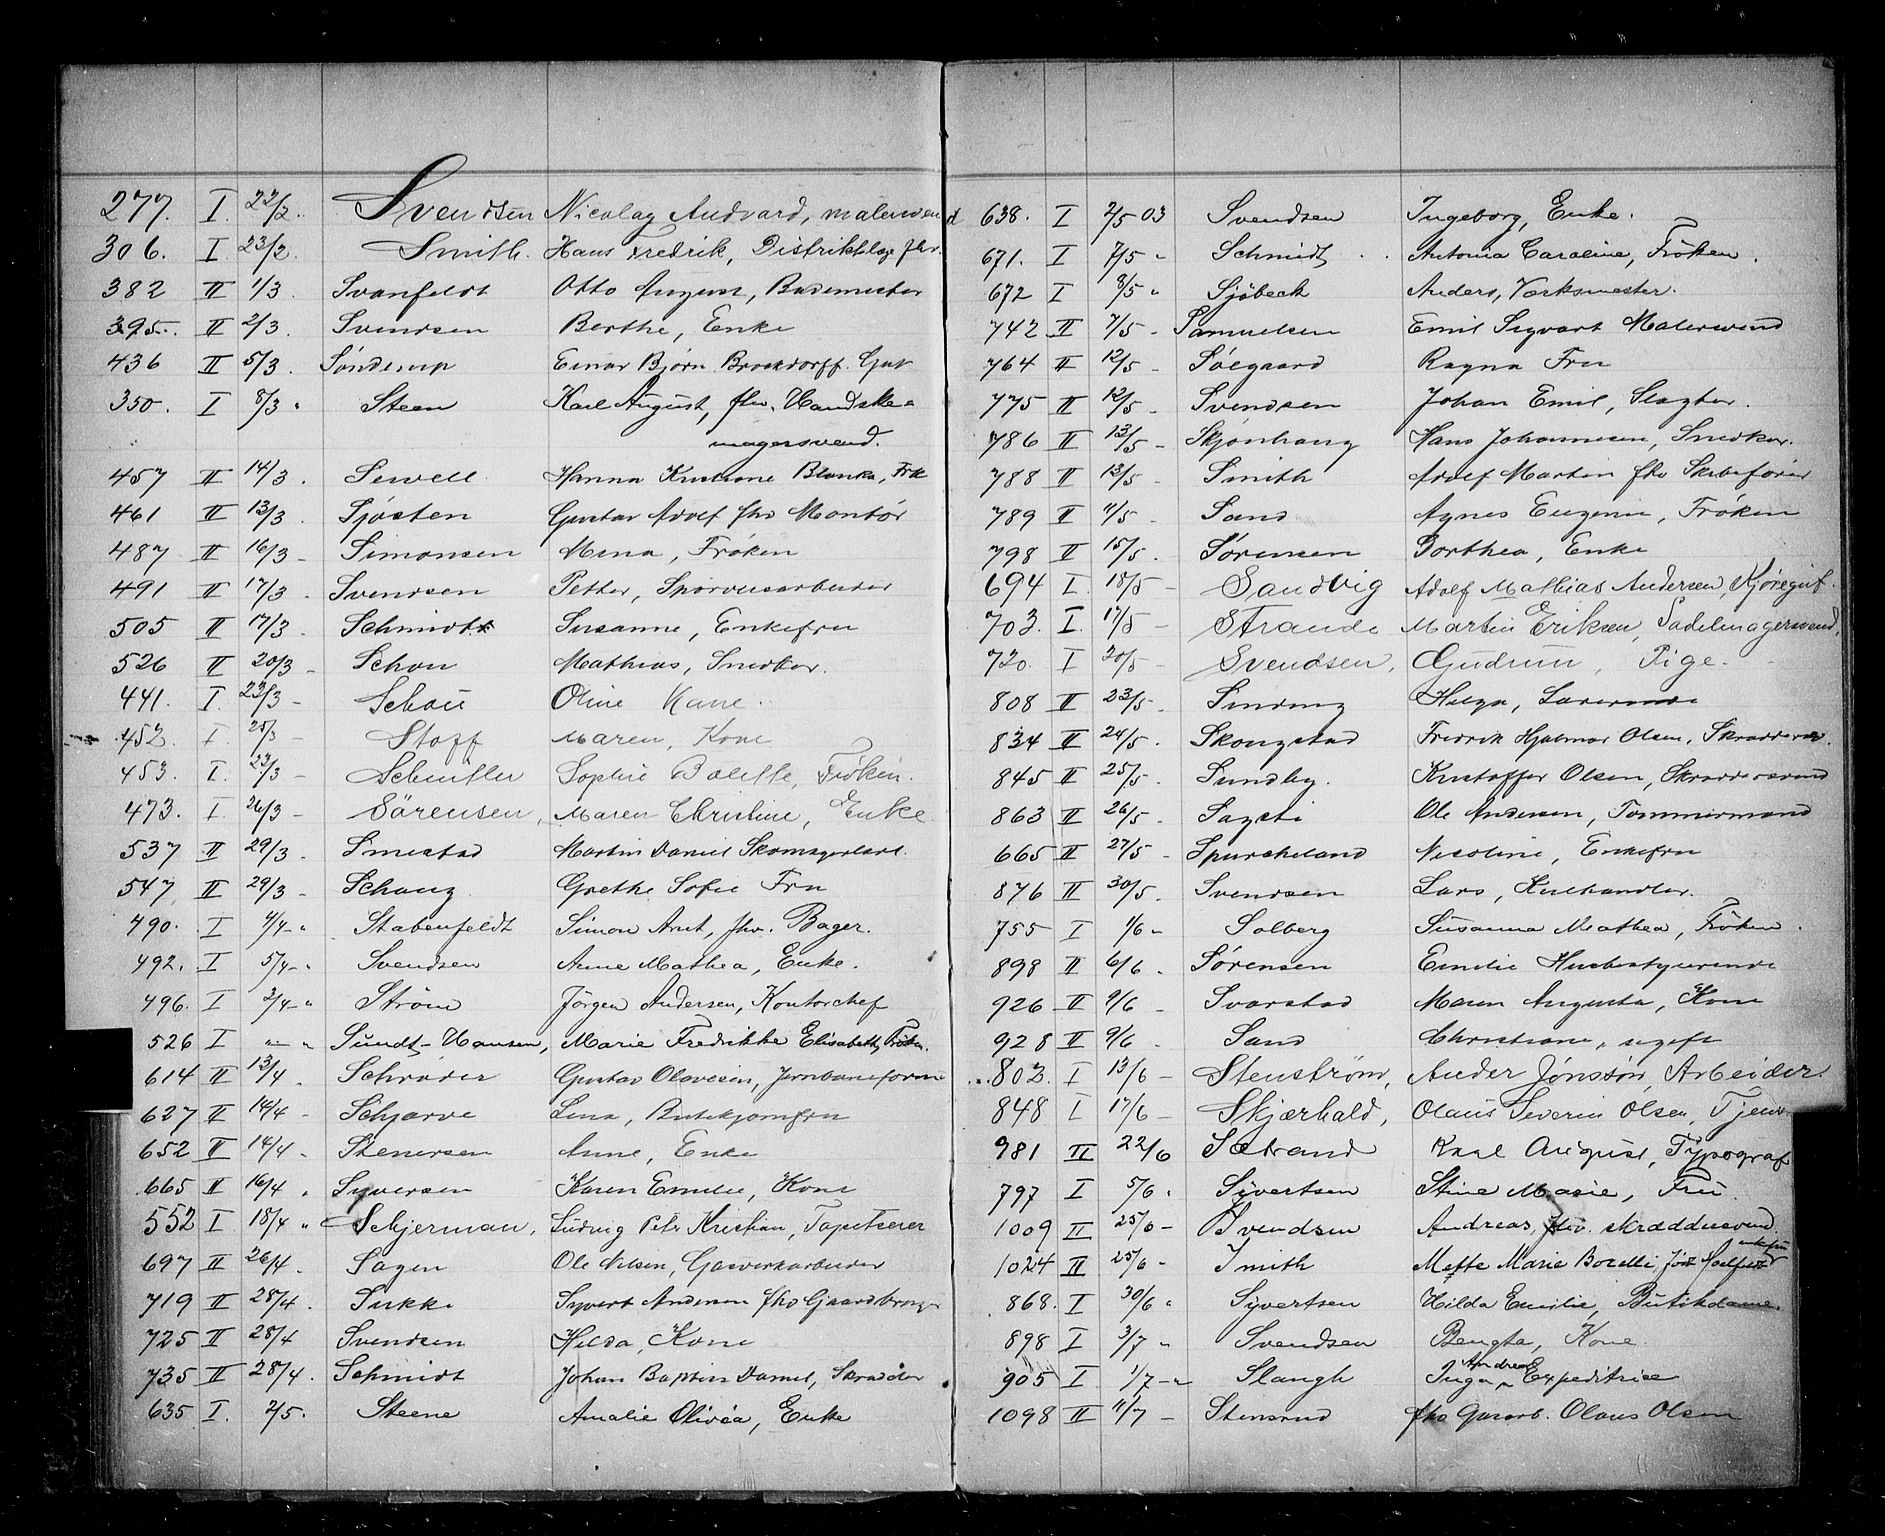 277. I. 22/2. Svendsen Nicolay Andvard, malersvend
306. I. 23/2. Smith. Hans Fredrik, Distriktslæge fhv.
382 II 1/3. Svanfeldt Otto August, Bademester
395. II 2/3. Svendsen Berthe, Enke
436 II 5/3. Sönderup Einar Bjørn Brockdorff. Gut
350. I 8/3 " Steen Karl August, fhv. Handske=
magersvend.
457 II 14/3. Sewell Hanna Kristiane Blanka, Frk
461 II 13/3. Sjösten Gustav Adolf fhv Montör
487 II 16/3 - Simonsen Mina, Frøken
491 II 17/3. Svendsen Petter, Sporveisarbeider
505 II 17/3. Schmidt Susanne, Enkefru
526 II 20/3 - Schou Mathias, Snedker.
441. I. 23/3 - Schou Oline Kone.
452. I 25/3 - Stoff Maren, Kone
453. I. 23/3 - Scheitler Sophie Bolette, Frøken.
473. I. 26/3 - Sörensen, Maren Christine, Enke
537 II 29/3. Smestad Martin Daniel Skomagerlærl.
547 II 29/3 - Schanz Grethe Sofie Fru
490. I 4/4 - " Stabenfeldt Simon Arnt, fhv. Bager.
492. I 5/4 - " Svendsen Anne Mathea, Enke.
496. I 3/4 - " Ström Jörgen Andersen, Kontorchef
526 I " - " Sundt-Hansen, Marie Fredrikke Elisabeth, Frøken.
614 II 13/4. Schrøder Gustav Olavesen, Jernbaneform
627 II 14/4 - Schjarve Lina, Butikjomfru
652 II 14/4 - Stenersen Anne, Enke
665 II 16/4 " Syversen Karen Emelie, Kone
552 I 18/4 " Schjerman, Ludvig Petr Kristian, Tapetserer
697 II 26/4. Sagen Ole Nilsen, Gasverkarbeider
719 II 28/4. Sukke Syvert Andersen fhv Gaardbruger
725 II 28/4 Svendsen Hilda, Kone
735 II 28/4. Schmidt Johan Baptist Daniel, Skrædder
635 I. 2/5. Steene Amalie Olivéa, Enke
638. I 2/5 03 Svendsen Ingeborg, Enke.
671. I 7/5 " Schmidt Antonia Caroline, Frøken.
672 I 8/5 " Sjöbeck Anders, Værksmester.
742 II 7/5 - Samuelsen Emil Sigvart Malersvend
764 II 12/5 - Søegaard Ragna Fru
775 II 12/5 - Svendsen Johan Emil, Slagter.
786 II 13/5 - Skjønhaug Hans Johannesen, Snedker.
788 II 13/5 - Smith Adolf Martin fhv Skibsfører
789 II 11/5 - Sand Agnes Eugenie, Frøken
798 II 15/5. Sørensen Dorthea, Enke
694 I. 18/5 - Sandvig Adolf Mathias Andersen, Kjøregut.
703. I. 17/5 - Strande Martin Eriksen, Sadelmagersvend.
720. I 20/5 - Svendsen, Gudrun, Pige.
808 II 23/5 - Sinding Helga,
834 II 24/5. Skougstad Fredrik Hjalmar Olsen, Skræddersv.
845 II 25/5. Sundby. Kristoffer Olsen, Skræddersvend
863 II 26/5. Ole Andersen, Tømmermand
665 II 27/5 - Spurkeland Nicoline, Enkefru
876 II 30/5. Svendsen Lars, Kulhandler.
755 I 1/6 " Solberg Susanna Mathea, Frøken.
898 II 6/6. Sørensen Emelie Husbestyrerinde
926 II 9/6. Svarstad Maren Augusta, Kone
928 II 9/6. Sand Christiane, ugift
803. I 13/6 - Stenström, Ander Jönsson, Arbeider.
848 I 17/6 - Skjærhald, Olaus Severin Olsen, Tjener
981 II 22/6 Sætrand Karl August, Typograf
797 I 5/6 " Syvertsen Stine Marie, Fru.
1009 II 25/6 - Svendsen Andreas, fhv. skræddersvend
1024 II 25/6 - Smith Mette Marie Bozetti, født enkefru
868. I 30/6 " Syvertsen Hilda Emilie, Butikdame.
898 I 3/7 " Svendsen Bengta, Kone.
905 I 1/7 - " Slangh Inga Andrea, Expeditrice
1098 II 11/7 - Stensrud fhv Gasarb. Olaus Olsen